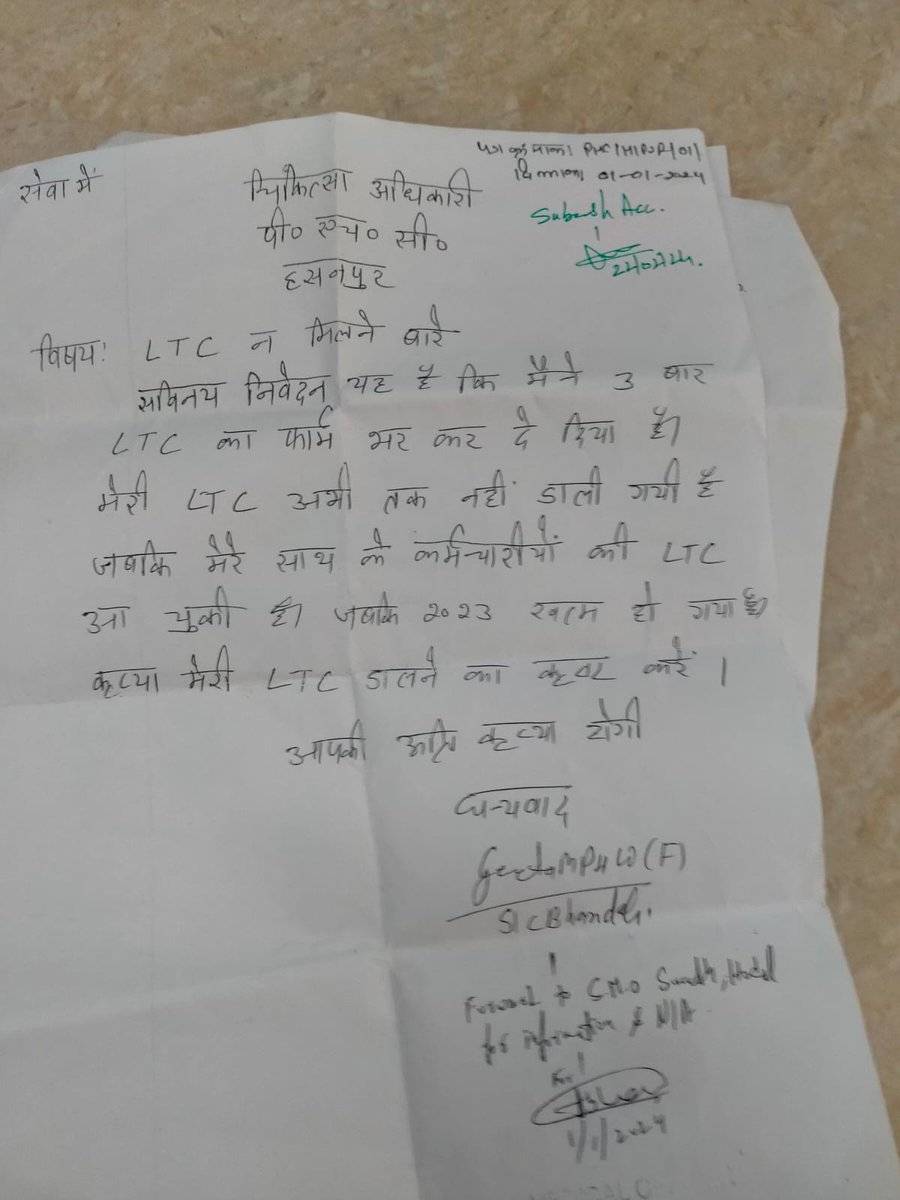 पत्र क्रमांक। PHC/HPUR/01/
दिनांक 01-01-2024
Subash Acc.
सेवा में
चिकित्सा अधिकारी
पी० एच० सी०
हसनपुर
विषय: LTC न मिलने बारे
सविनय निवेदन यह है कि मैने 3 बार
LTC का फार्म भर कर दे दिया है।
मेरी LTC अभी तक नहीं डाली गयी है
जबकि मेरे साथ के कर्मचारीयों की LTC
आ चुकी है। जबकि 2023 खत्म हो गया है।
कृप्या मेरी LTC डालने का कष्ट करें।
आपकी अति कृप्या होगी
धन्यवाद
Geeta MPHW(F)
S/C Bhanduli.
Forward to CMO
for information & N/A
For
1/1/2024